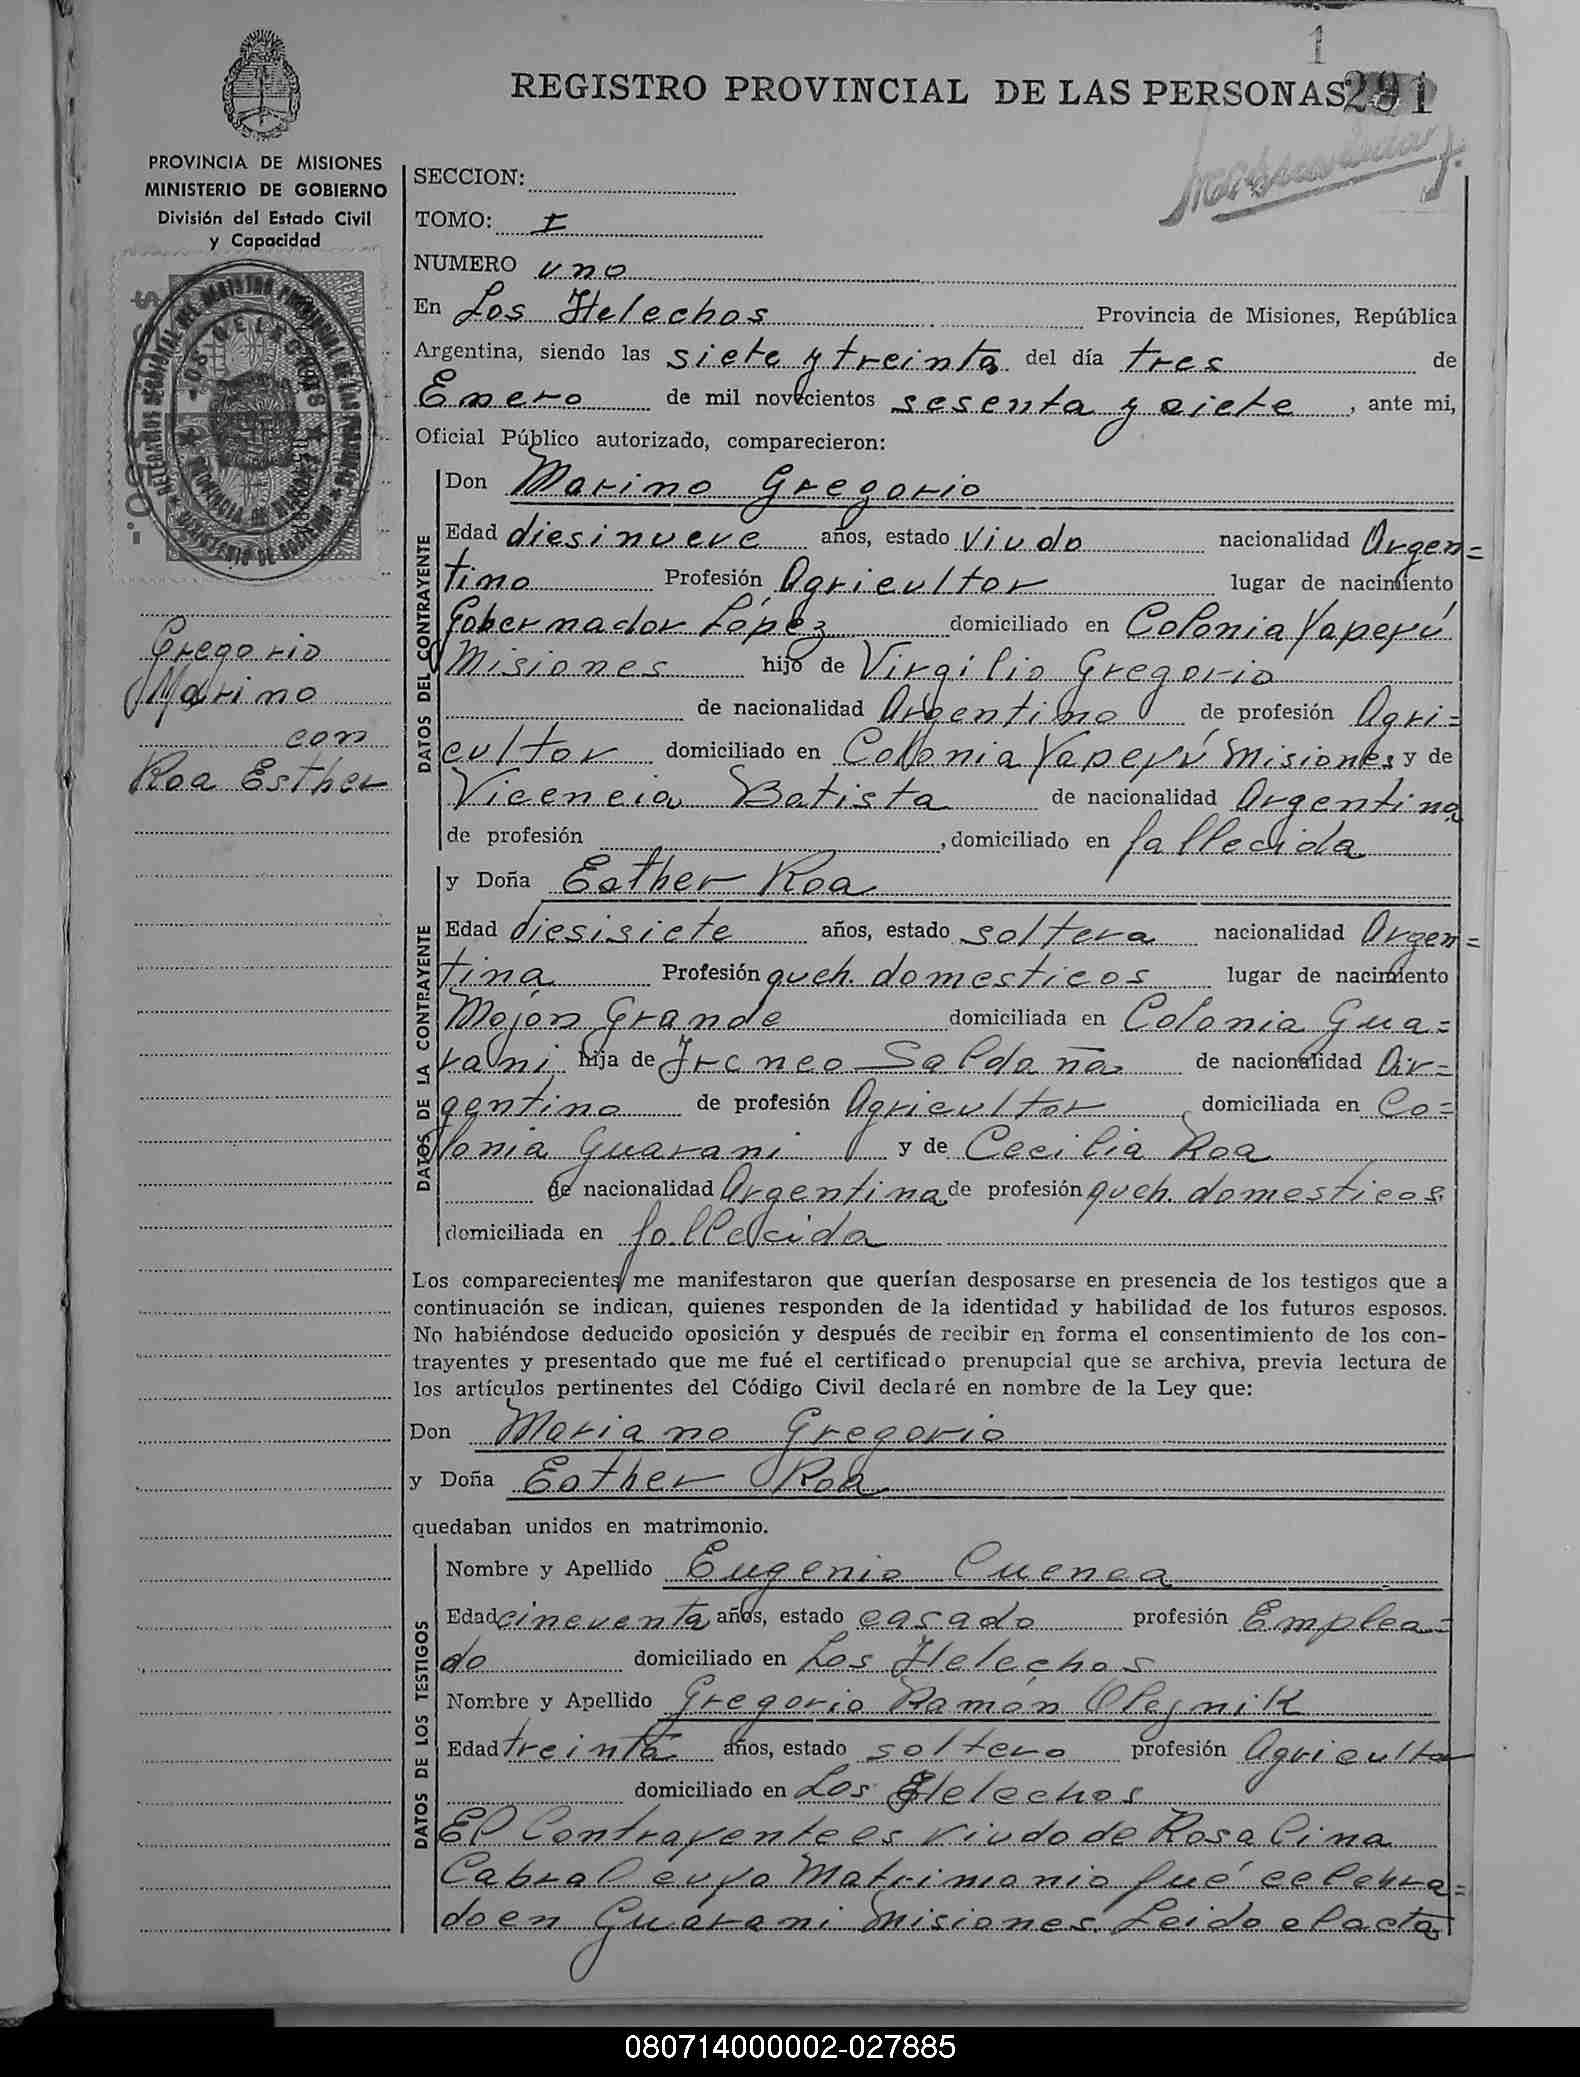 1
REGISTRO PROVINCIAL DE LAS PERSONAS 291
PROVINCIA DE MISIONES
MINISTERIO DE GOBIERNO
División del Estado Civil
y Capacidad
Gregorio
Marino
con
Roa Esther
SECCION:
TOMO: I
NUMERO uno
En Los Helechos Provincia de Misiones, República
Argentina, siendo las siete y treinta del día tres de
Enero de mil novecientos sesenta y siete, ante mi,
Oficial Público autorizado, comparecieron:
DATOS DEL CONTRAYENTE
Don Marino Gregorio
Edad diesinueve años, estado viudo nacionalidad Argen=
tino Profesión Agricultor lugar de nacimiento
Gobernador López domiciliado en Colonia Yapeyú
Misiones hijo de Virgilio Gregorio
de nacionalidad Argentino de profesión Agri=
cultor domiciliado en Colonia Yapeyú Misiones y de
Vicencia Batista de nacionalidad Argentina
de profesión , domiciliado en fallecida
DATOS DE LA CONTRAYENTE
y Doña Esther Roa
Edad diesisiete años, estado soltera nacionalidad Argen=
tina Profesión queh. domesticos lugar de nacimiento
Mojón Grande domiciliada en Colonia Gua=
rani hija de Ireneo Saldaña de nacionalidad Ar=
gentino de profesión Agricultor domiciliada en Co=
lonia Guarani y de Cecilia Roa
de nacionalidad Argentina de profesión queh. domesticos
domiciliada en fallecida
Los comparecientes me manifestaron que querían desposarse en presencia de los testigos que a
continuación se indican, quienes responden de la identidad y habilidad de los futuros esposos.
No habiéndose deducido oposición y después de recibir en forma el consentimiento de los con-
trayentes y presentado que me fué el certificado prenupcial que se archiva, previa lectura de
los artículos pertinentes del Código Civil declaré en nombre de la Ley que:
Don Mariano Gregorio
y Doña Esther Roa
quedaban unidos en matrimonio.
DATOS DE LOS TESTIGOS
Nombre y Apellido Eugenio Cuenca
Edad cincuenta años, estado casado profesión Emplea=
do domiciliado en Los Helechos
Nombre y Apellido Gregorio Ramón Olejnik
Edad treinta años, estado soltero profesión Agricultor
domiciliado en Los Helechos
El Contrayente es viudo de Rosalina
Cabral cuyo Matrimonio fué celebra=
do en Guarani Misiones. Leido el acta
080714000002-027885